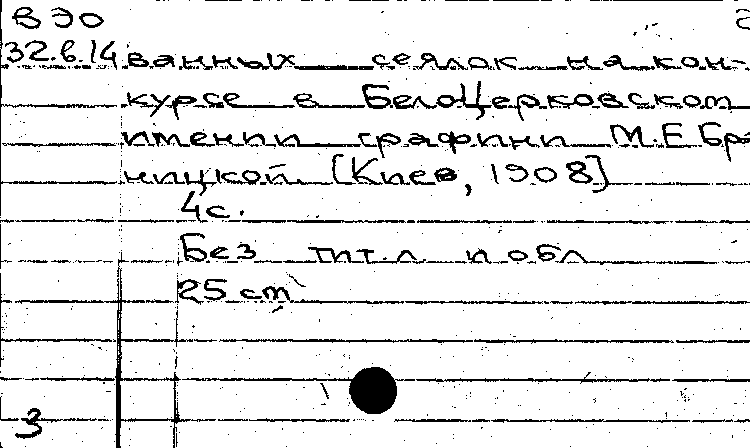 ВЭО
32.6.14 ванных сеялок на кон-
курсе в Белоцерковском
имении графини М.Е.Бра
ницкой. [Киев, 1908]
4с.
Без тит.л. и обл
25 cm
3